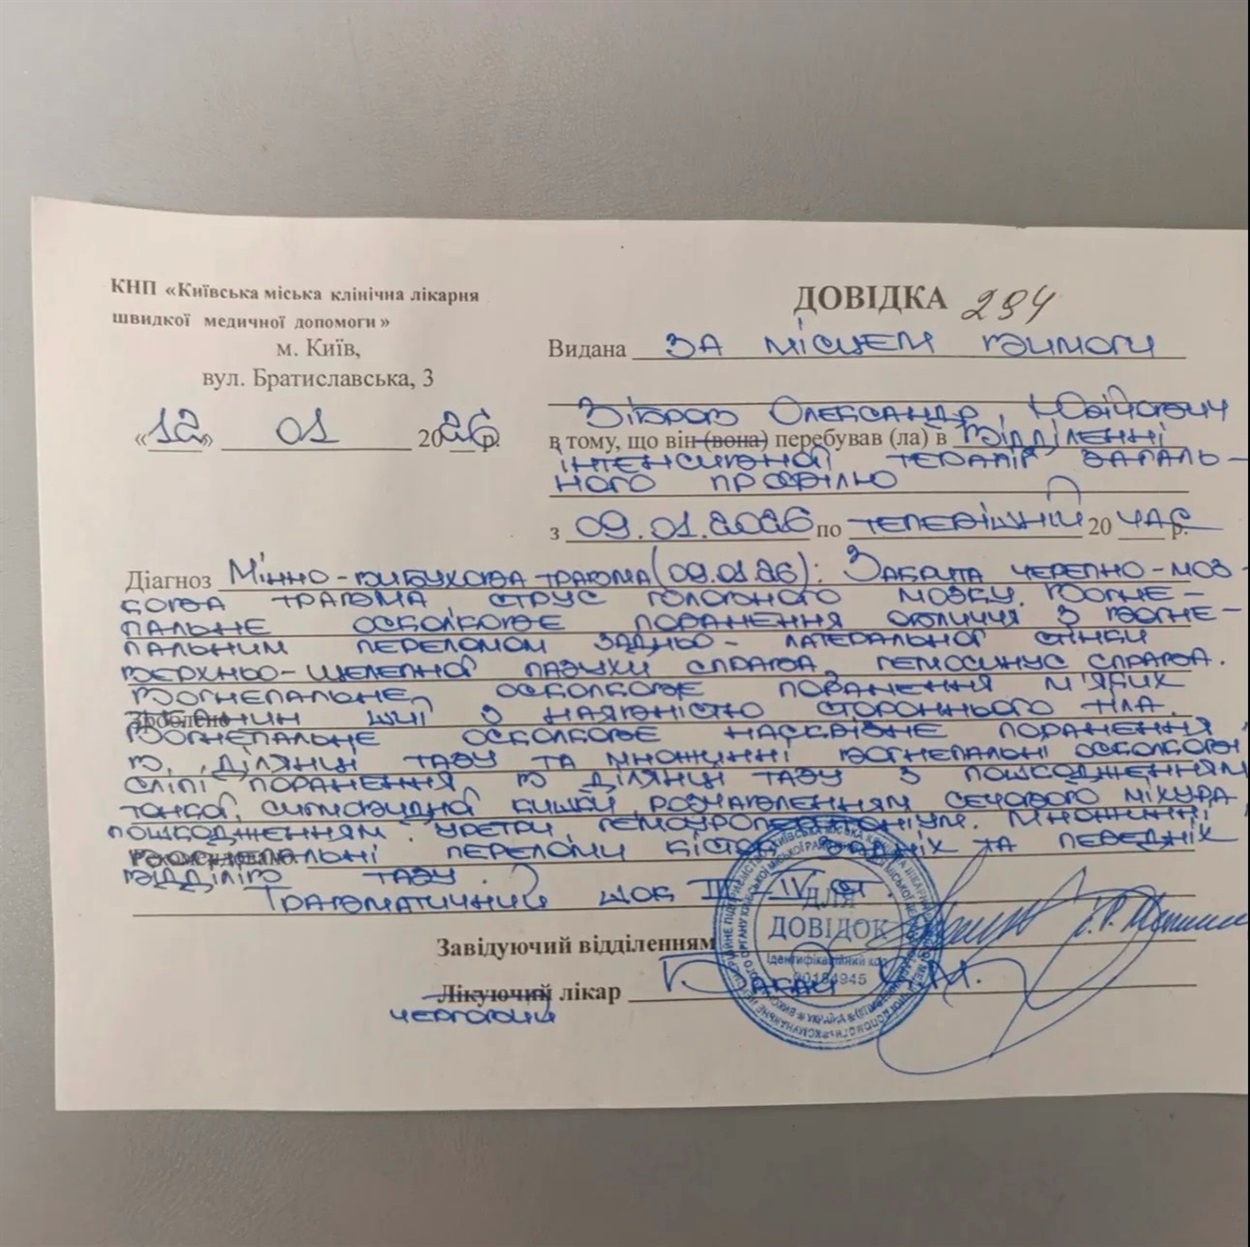 КНП «Київська міська клінічна лікарня
швидкої медичної допомоги»
м. Київ,
вул. Братиславська, 3
«12» 01 2026 р.
ДОВІДКА 294
Видана за місцем вимоги
Зібров Олександр Юрійович
в тому, що він (вона) перебував (ла) в відділенні
інтенсивної терапії загаль-
ного профілю
з 09.01.2026 по теперішній 20 час р.
Діагноз Мінно-вибухова травма (09.01.26): Закрита черепно-моз-
кова травма, струс головного мозку. Вогне-
пальне осколкове поранення обличчя з вогне-
пальним переломом задньо-латеральної стінки
верхньо-щелепної пазухи справа, гемосинус справа.
Вогнепальне, осколкове поранення м'яких
Зроблено
тканин шиї з наявністю стороннього тіла.
Вогнепальне осколкове наскрізне поранення
в ділянці тазу та множинні вогнепальні осколкові
сліпі поранення в ділянці тазу з пошкодженням
тонкої, сигмовидної кишки, розчавленням сечового міхура,
пошкодженням уретри, гемоуроперитоніум. Множинні
Рекомендовано:
вогнепальні переломи кісток задніх та передніх
відділів тазу.
Травматичний шок III-IV ст.
Завідуючий відділенням
Лікуючий лікар
черговий
ДЛЯ
ДОВІДОК
Ідентифікаційний код